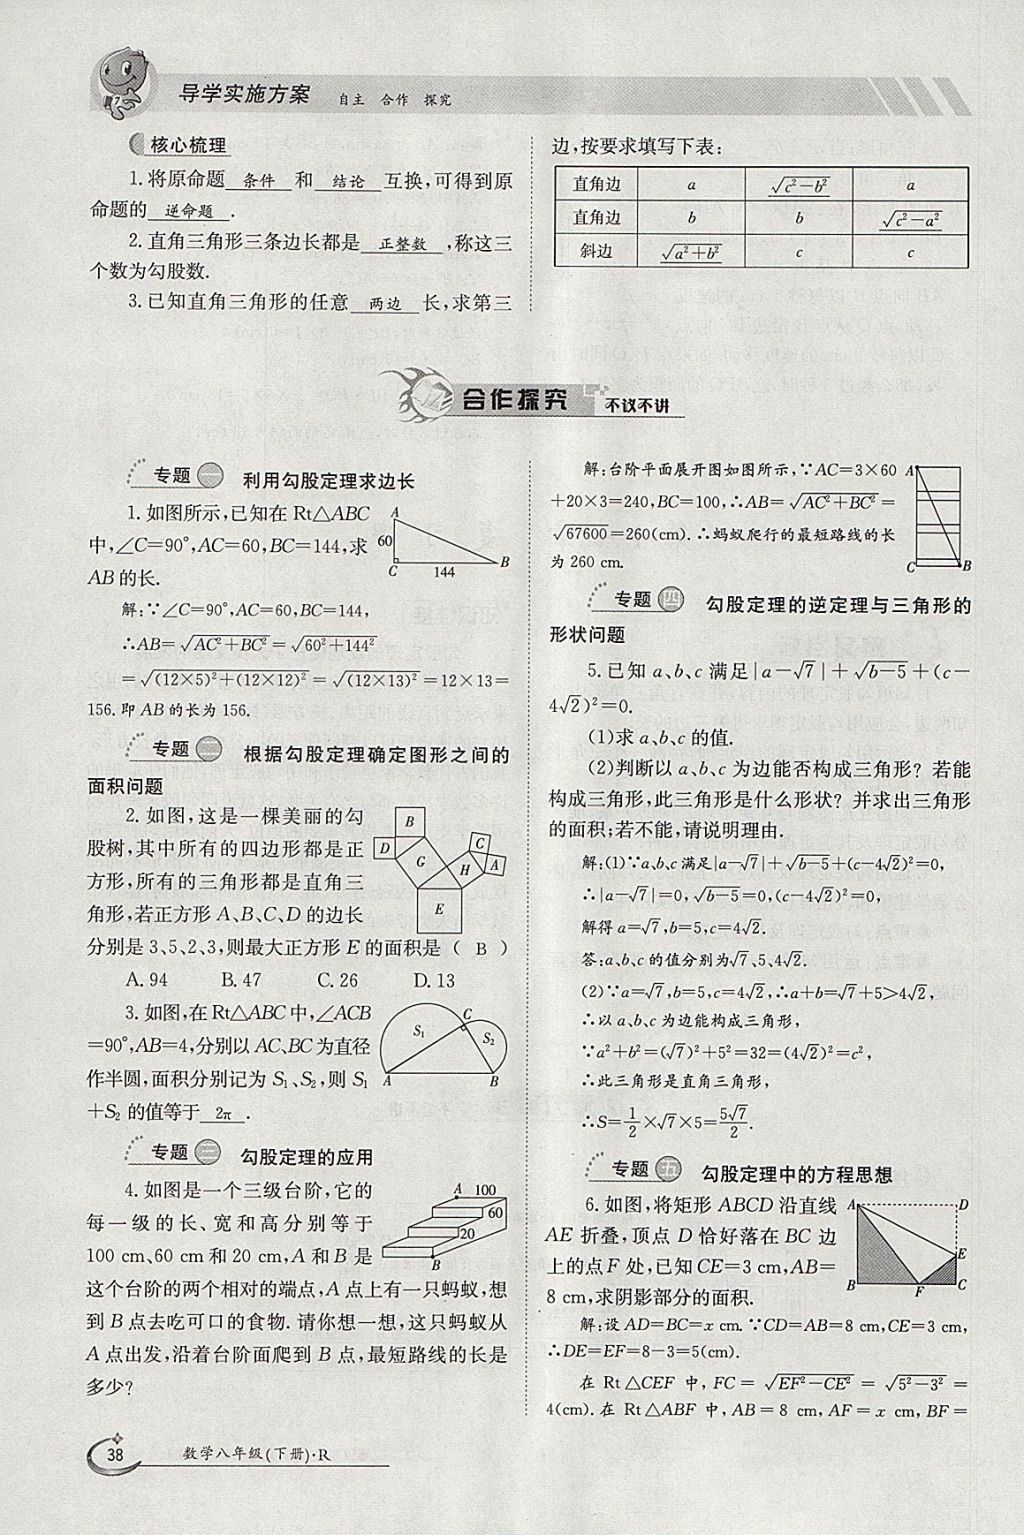 导学实施方案 自主 合作 探究
核心梳理
1.将原命题 条件 和 结论 互换,可得到原
命题的 逆命题 .
2.直角三角形三条边长都是 正整数 ,称这三
个数为勾股数.
3.已知直角三角形的任意 两边 长,求第三
边,按要求填写下表:
直角边 a √(c²-b²) a
直角边 b b √(c²-a²)
斜边 √(a²+b²) c c
合作探究 不议不讲
专题一 利用勾股定理求边长
1.如图所示,已知在 Rt△ABC
中,∠C=90°,AC=60,BC=144,求
AB的长.
A
60
C 144 B
解:∵∠C=90°,AC=60,BC=144,
∴AB=√(AC²+BC²)=√(60²+144²)
=√((12×5)²+(12×12)²)=√((12×13)²)=12×13=
156.即AB的长为156.
专题二 根据勾股定理确定图形之间的
面积问题
2.如图,这是一棵美丽的勾
股树,其中所有的四边形都是正
方形,所有的三角形都是直角三
角形,若正方形A、B、C、D的边长
分别是3、5、2、3,则最大正方形E的面积是( B )
B
D
G
C
H A
E
A.94 B.47 C.26 D.13
3.如图,在Rt△ABC中,∠ACB
=90°,AB=4,分别以AC、BC为直径
作半圆,面积分别记为S₁、S₂,则S₁
+S₂的值等于 2π .
C
S₁
S₂
A B
专题三 勾股定理的应用
4.如图是一个三级台阶,它的
每一级的长、宽和高分别等于
100 cm、60 cm和20 cm,A和B是
这个台阶的两个相对的端点,A点上有一只蚂蚁,想
到B点去吃可口的食物.请你想一想,这只蚂蚁从
A点出发,沿着台阶面爬到B点,最短路线的长是
多少?
A 100
60
20
B
解:台阶平面展开图如图所示,∵AC=3×60
+20×3=240,BC=100,∴AB=√(AC²+BC²)=
√67600=260(cm).∴蚂蚁爬行的最短路线的长
为260 cm.
A
C B
专题四 勾股定理的逆定理与三角形的
形状问题
5.已知a、b、c满足|a-√7|+√(b-5)+(c-
4√2)²=0.
(1)求a、b、c的值.
(2)判断以a、b、c为边能否构成三角形?若能
构成三角形,此三角形是什么形状?并求出三角形
的面积;若不能,请说明理由.
解:(1)∵a、b、c满足|a-√7|+√(b-5)+(c-4√2)²=0,
∴|a-√7|=0,√(b-5)=0,(c-4√2)²=0,
解得a=√7,b=5,c=4√2.
答:a、b、c的值分别为√7、5、4√2.
(2)∵a=√7,b=5,c=4√2,∴a+b=√7+5>4√2,
∴以a、b、c为边能构成三角形,
∵a²+b²=(√7)²+5²=32=(4√2)²=c²,
∴此三角形是直角三角形,
∴S=1/2×√7×5=5√7/2.
专题五 勾股定理中的方程思想
6.如图,将矩形ABCD沿直线
AE折叠,顶点D恰好落在BC边
上的点F处,已知CE=3 cm,AB=
8 cm,求阴影部分的面积.
A D
E
B F C
解:设AD=BC=x cm.∵CD=AB=8 cm,CE=3 cm,
∴DE=EF=8-3=5(cm).
在Rt△CEF中,FC=√(EF²-CE²)=√(5²-3²)=
4(cm).在Rt△ABF中,AB=8 cm,AF=x cm,BF=
38 数学八年级(下册)·R